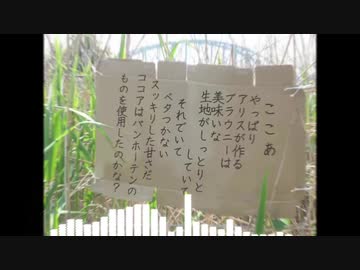 ここあ
やっぱり
アリスが作る
ブラウニーは
美味いな
生地がしっとりと
していて
それでいて
ベタつかない
スッキリした甘さだ
ココアはバンホーテンの
ものを使用したのかな？